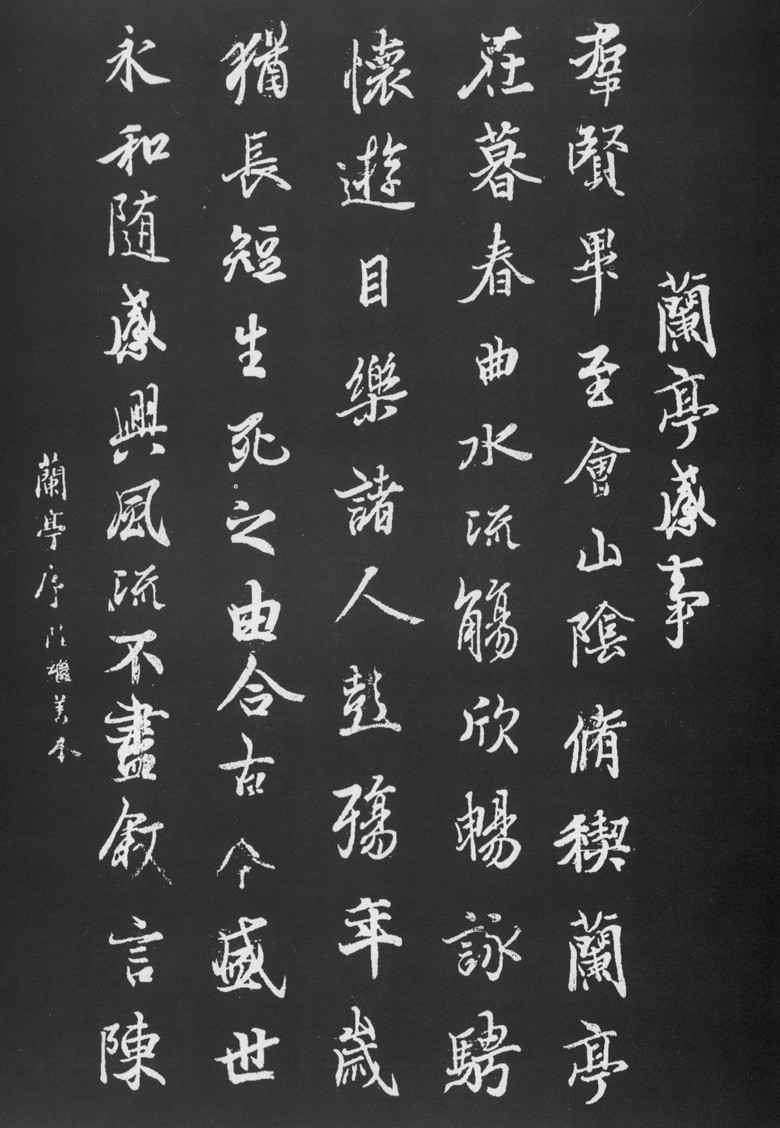 蘭亭感事
羣賢畢至會山陰脩稧蘭亭
在暮春曲水流觴欣暢詠騁
懷遊目樂諸人彭殤年歲
猶長短生死之由合古今盛世
永和隨感興風流不盡叙言陳
蘭亭序陸繼善本